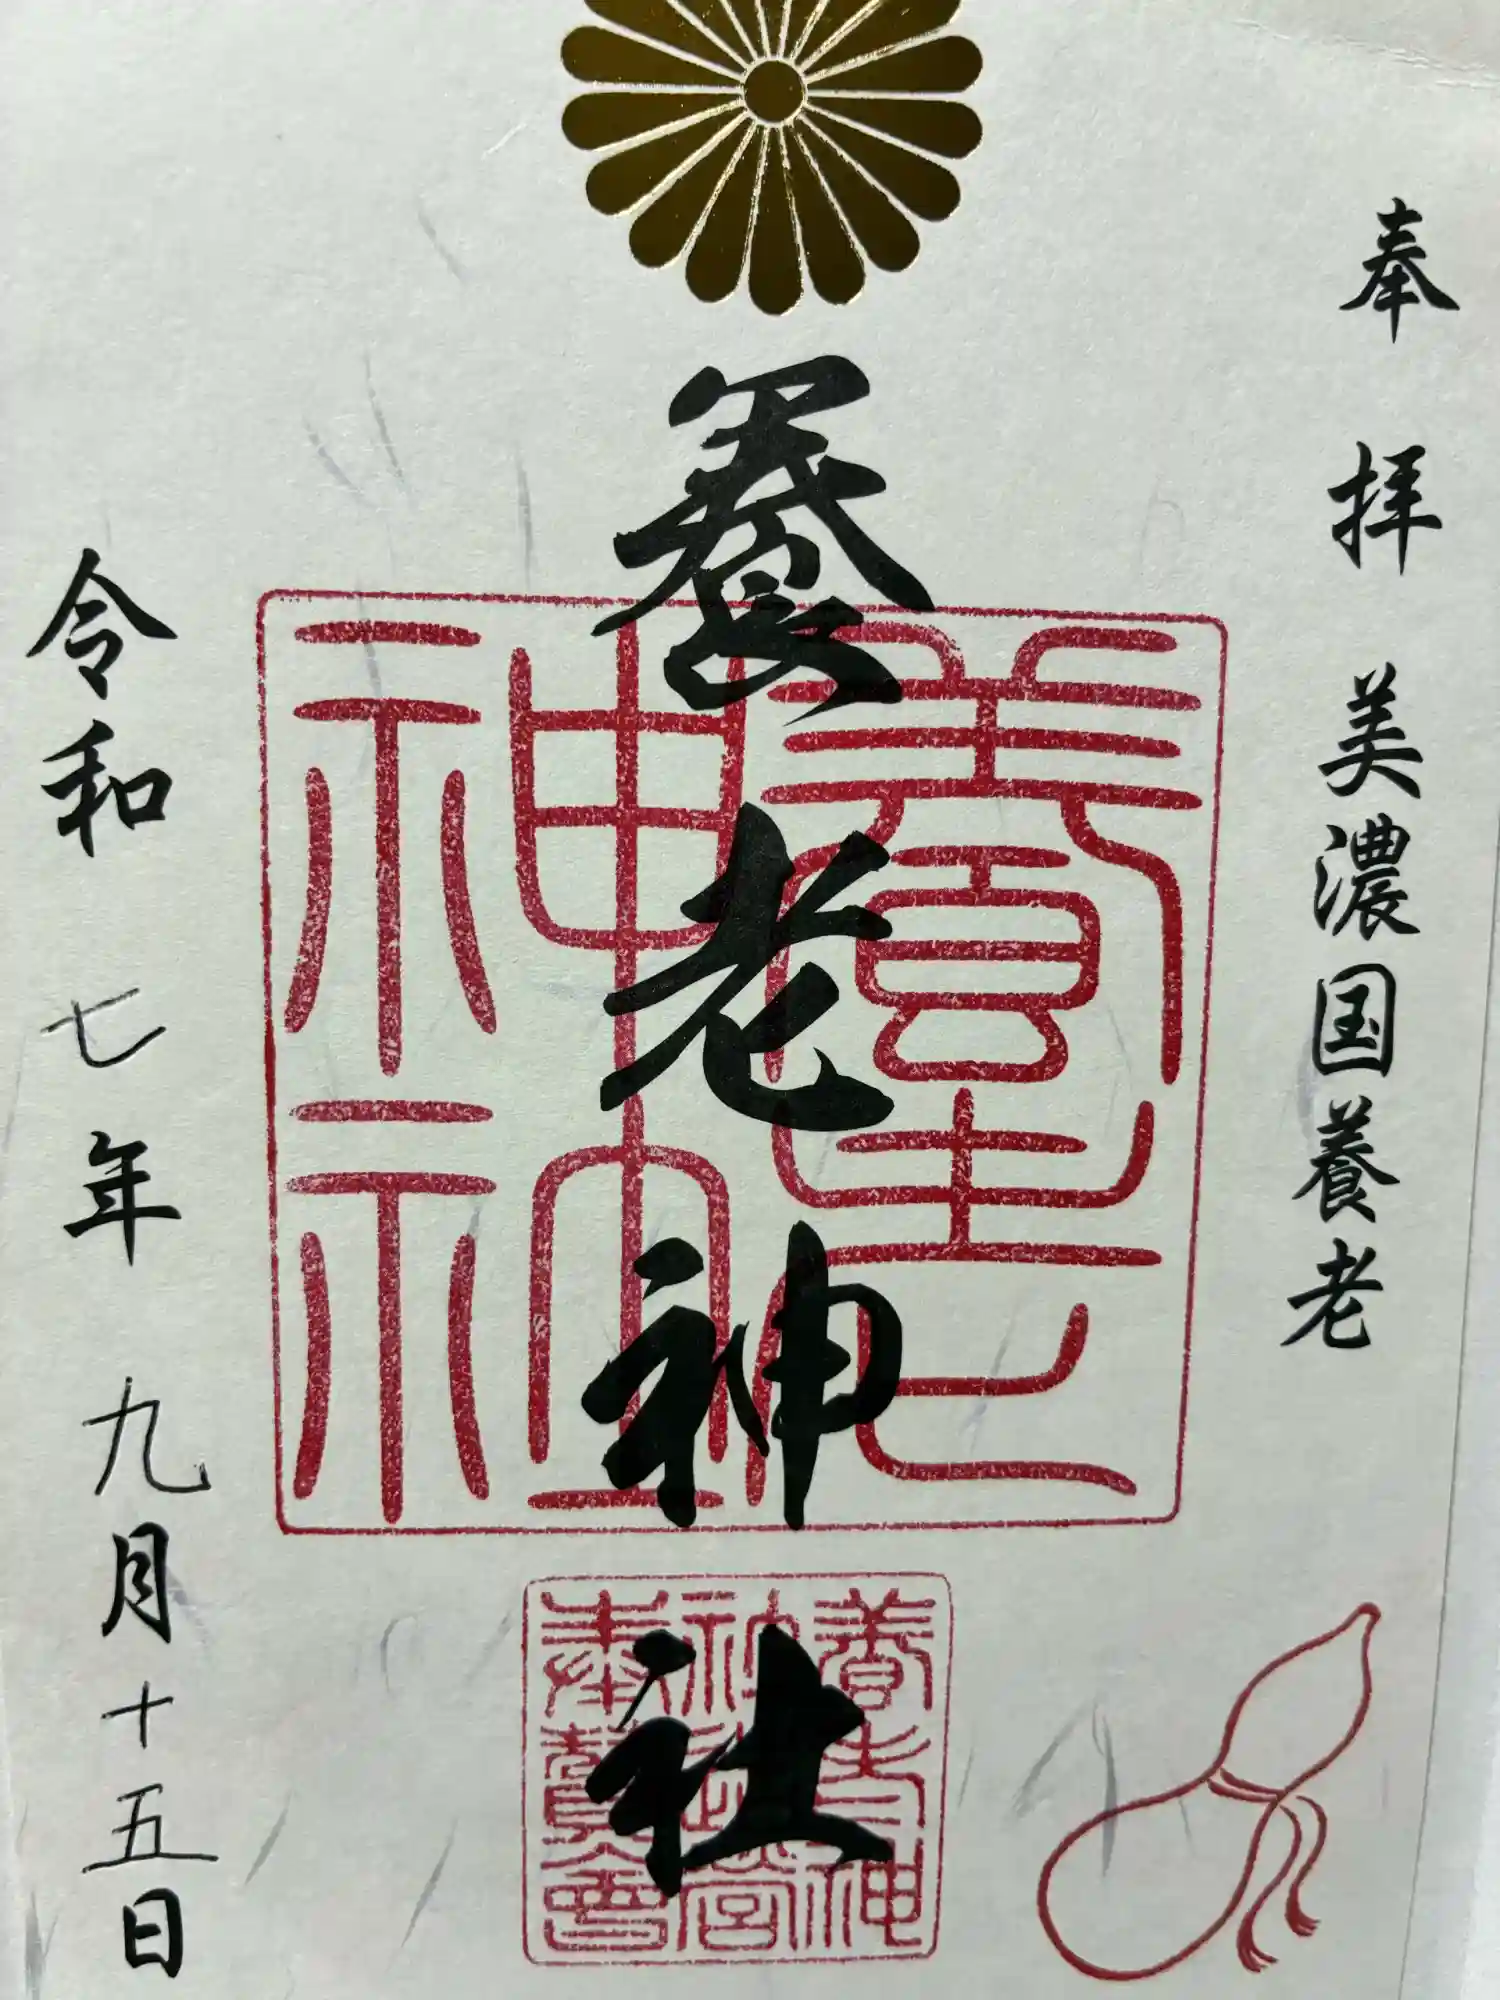 奉拝 美濃国養老
養老神社
養老神社
養老神社造営奉賛會
令和七年九月十五日